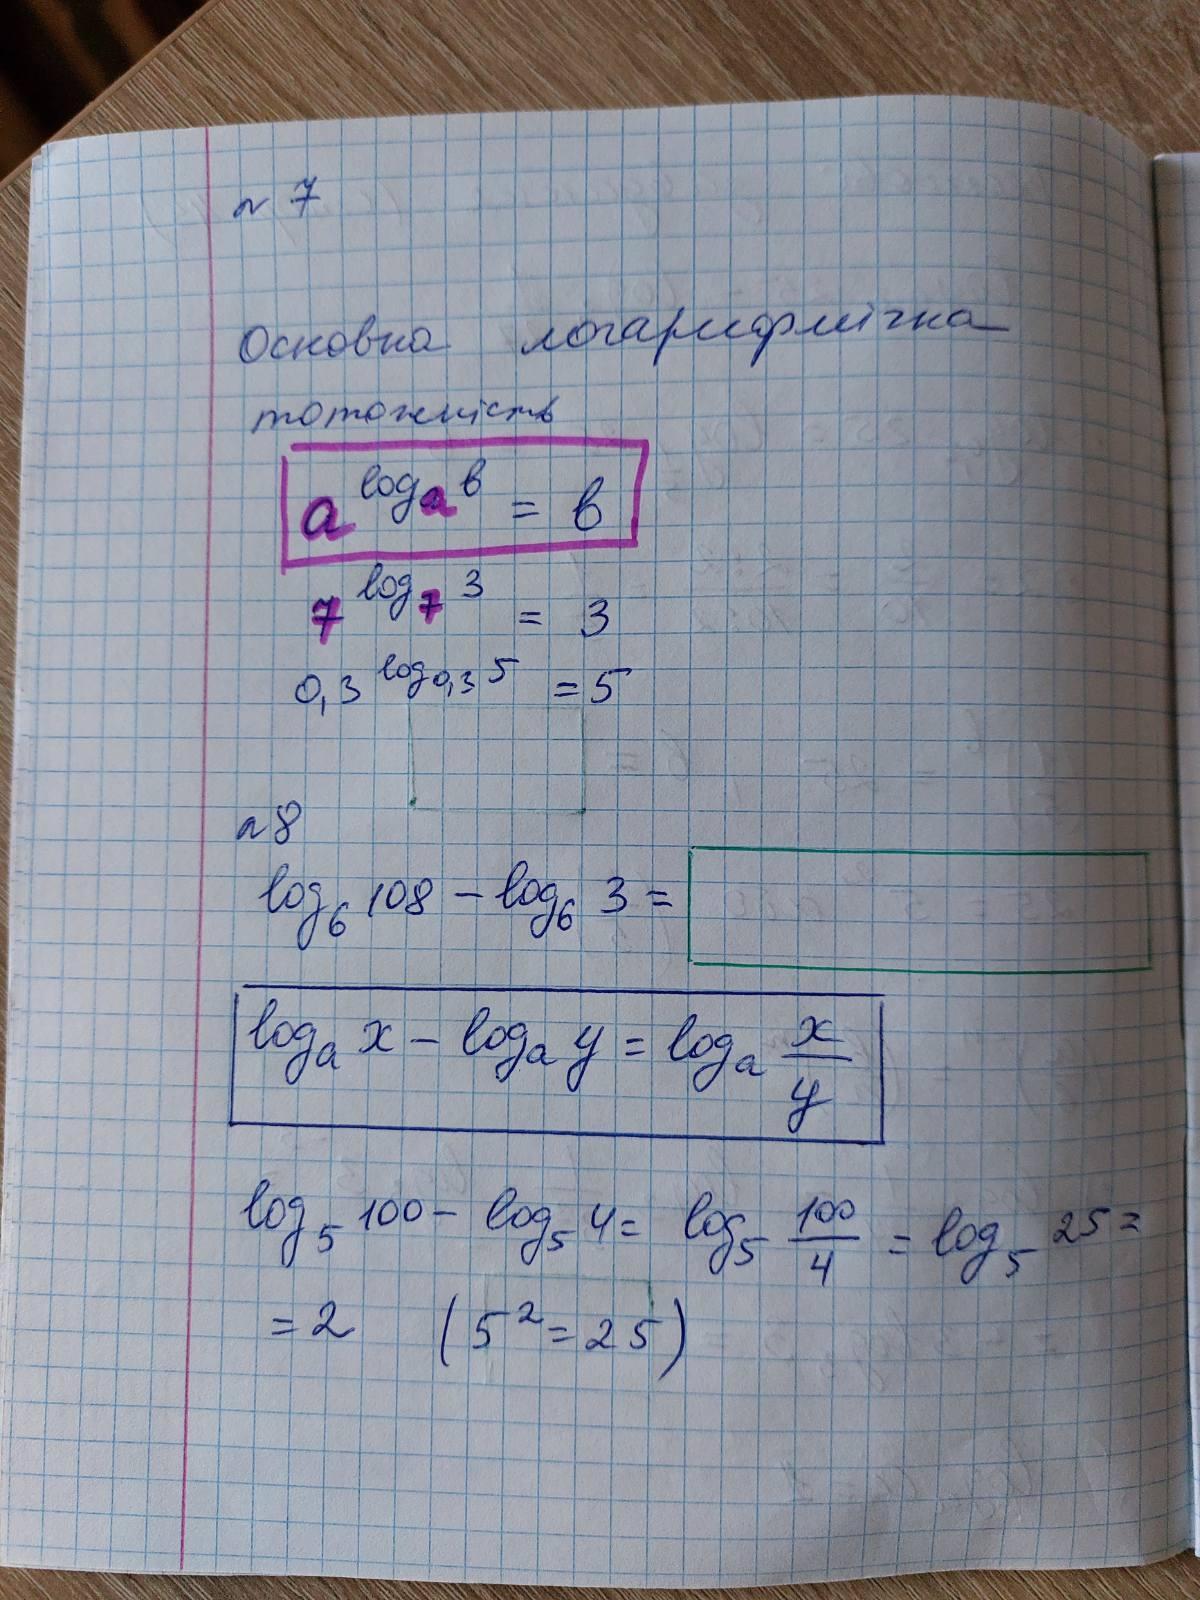 №7
Основна логарифмічна
тотожність
a^(log_a b) = b
7^(log_7 3) = 3
0,3^(log_0,3 5) = 5
№8
log_6 108 - log_6 3 =
log_a x - log_a y = log_a x/y
log_5 100 - log_5 4 = log_5 100/4 = log_5 25 =
= 2 (5^2 = 25)